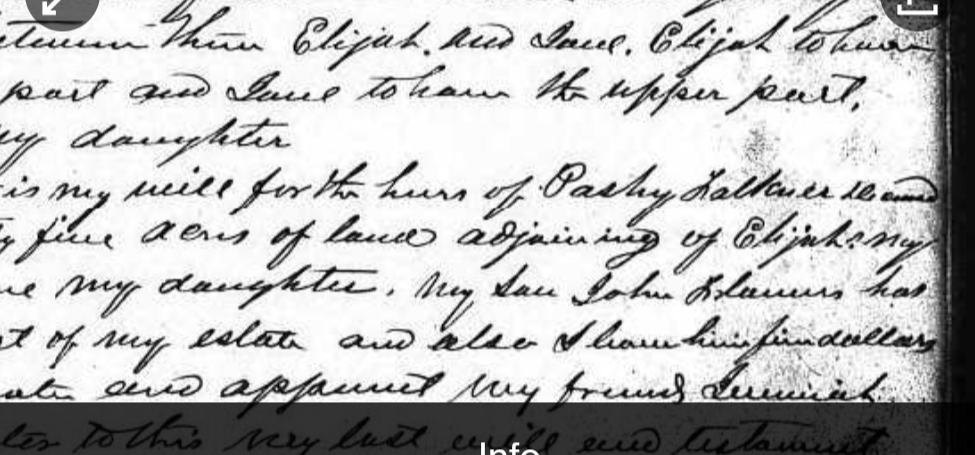 between them Elijah, and Jane. Elijah to have
part and Jane to have the upper part,
my daughter
is my will for the heirs of Pashy Falkner
five acres of land adjoining of Elijah my
my daughter. My son John has
of my estate and also I have him five dollars
and appoint my friend Jeremiah
to this my last will and testament
Info